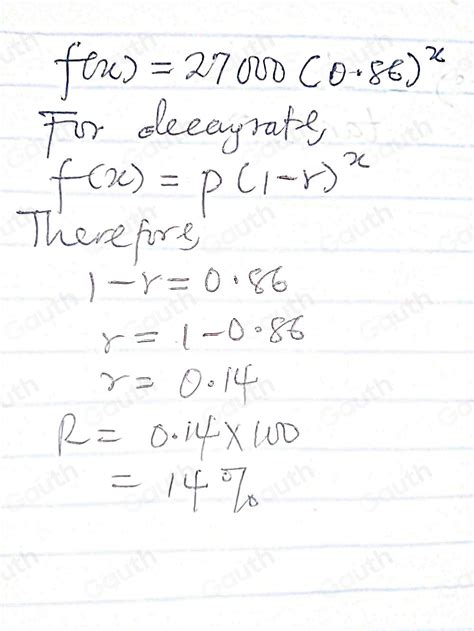 f(x) = 27000 (0.86)^x
For decay rate,
f(x) = p (1-r)^x
Therefore,
1-r = 0.86
r = 1-0.86
r = 0.14
R = 0.14 × 100
= 14 %